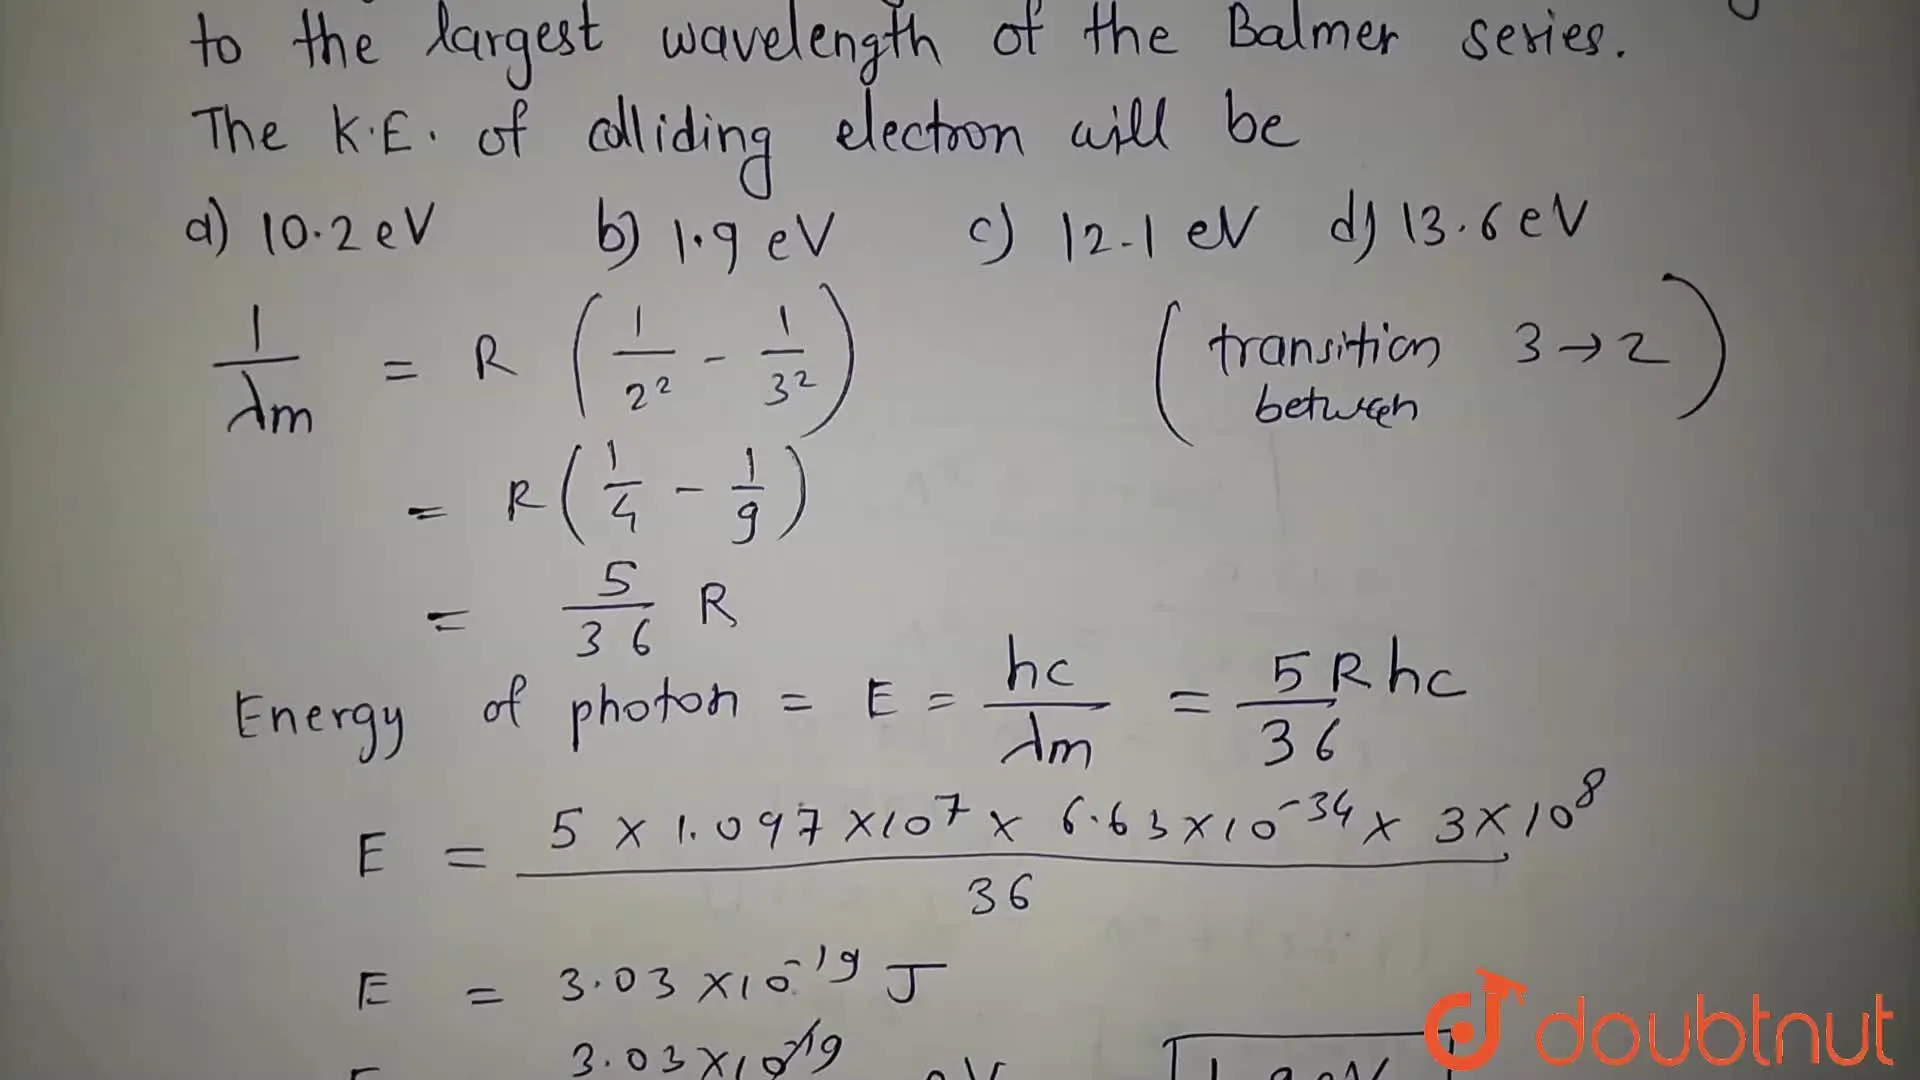 to the largest wavelength of the Balmer series.
The K.E. of colliding electron will be
a) 10.2 eV b) 1.9 eV c) 12.1 eV d) 13.6 eV
1/λm = R (1/2² - 1/3²) (transition between 3→2)
= R (1/4 - 1/9)
= 5/36 R
Energy of photon = E = hc/λm = 5Rhc/36
E = 5 × 1.097 × 10⁷ × 6.63 × 10⁻³⁴ × 3 × 10⁸ / 36
E = 3.03 × 10⁻¹⁹ J
3.03 × 10⁻¹⁹ eV
doubtnut